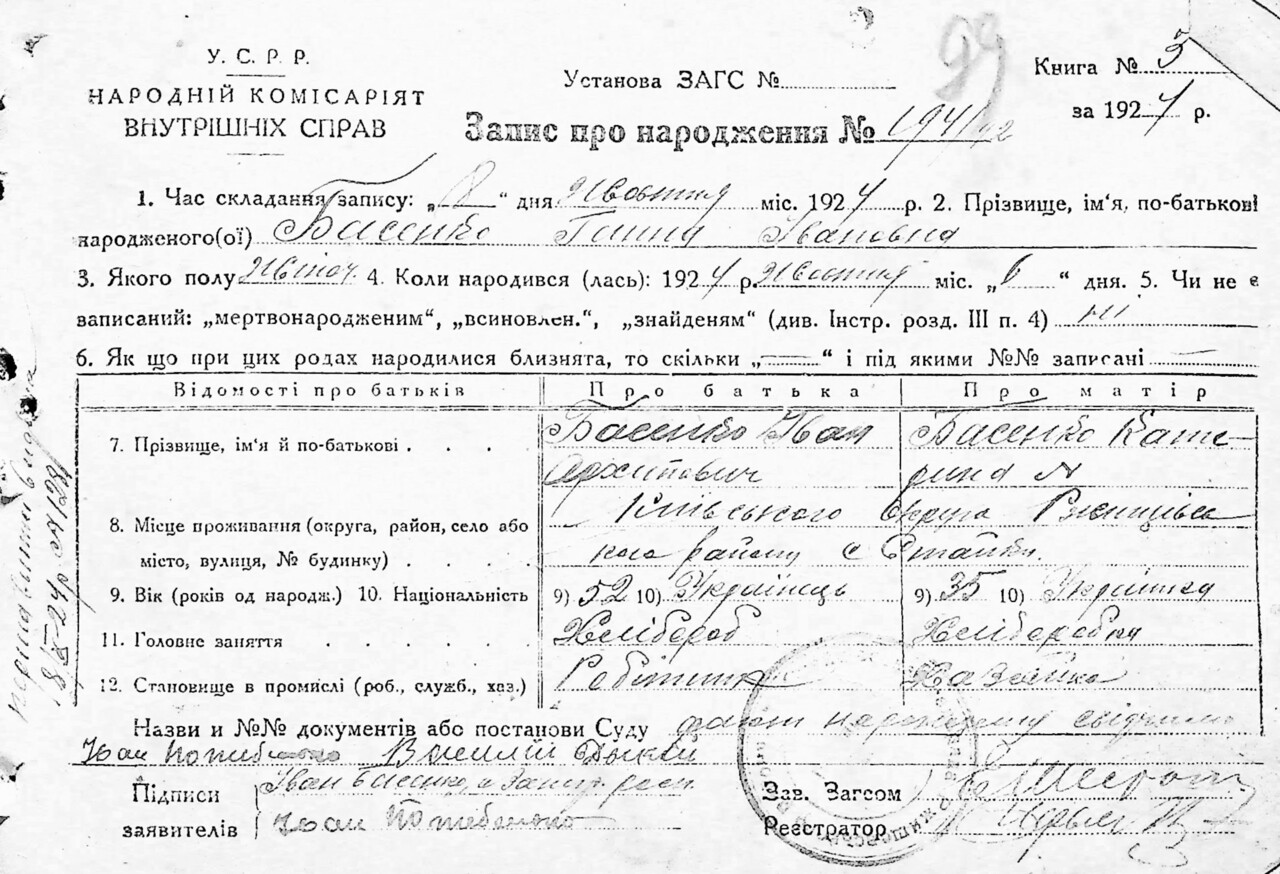 У. С. Р. Р.
НАРОДНІЙ КОМІСАРІЯТ
ВНУТРІШНІХ СПРАВ
Установа ЗАГС №
99
Книга № 3
за 1924 р.
Запис про народження № 194/42
1. Час складання запису: „8“ дня Жовтня міс. 1924 р. 2. Прізвище, ім‘я, по-батькові
народженого(ої) Басенко Ганна Івановна
3. Якого полу Жіноч. 4. Коли народився (лась): 1924 р. Жовтня міс. „6“ дня. 5. Чи не є
записаний: „мертвонародженим“, „всиновлен.“, „знайденям“ (див. Інстр. розд. III п. 4) ні
6. Як що при цих родах народилися близнята, то скільки „—“ і під якими №№ записані —
Відомості про батьків Про батька Про матір
7. Прізвище, ім‘я й по-батькові . . . .
Басенко Іван
Архипович
Басенко Кате-
рина
8. Місце проживання (округа, район, село або
місто, вулиця, № будинку) . . . .
Київського Округа Ржищівсь
кого району с Стайки.
9. Вік (років од народж.) 10. Національність 9) 52 10) Українець 9) 35 10) Українка
11. Головне заняття . . . . . . Хлібороб Хлібопобка
12. Становище в промислі (роб., служб., хаз.) Робітник Хазяйка
Назви и №№ документів або постанови Суду факт народжену свідчимо
Іван Потебенько Василій Дикий
Підписи
заявителів
Іван Басенко, а
Іван Потебенько
Зав. Загсом
Реєстратор
8/X-24р